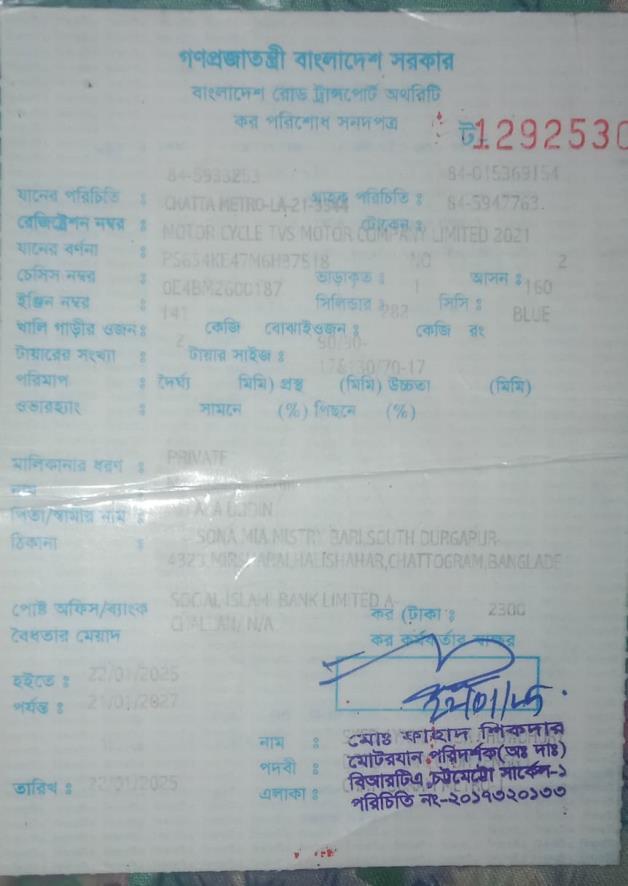 গণপ্রজাতন্ত্রী বাংলাদেশ সরকার
বাংলাদেশ রোড ট্রান্সপোর্ট অথরিটি
কর পরিশোধ সনদপত্র
ট-1292530
84-5933253 84-015369154
যানের পরিচিতি : গ্রাহক পরিচিতি : 84-5947763.
CHATTA METRO-LA-21-
রেজিষ্ট্রেশন নম্বর : টোকেন :
MOTOR CYCLE TVS MOTOR COMPANY LIMITED 2021
যানের বর্ণনা :
PS634KE47M6H37518 NO 2
চেসিস নম্বর : ভাড়াকৃত : আসন :
0E4BM2600187 1 160
ইঞ্জিন নম্বর : সিলিন্ডার : সিসি :
141 282 BLUE
খালি গাড়ীর ওজন : কেজি বোঝাইওজন : কেজি রং
2 90/90-
টায়ারের সংখ্যা : টায়ার সাইজ :
17&130/70-17
পরিমাপ : দৈর্ঘ্য মিমি) প্রস্থ (মিমি) উচ্চতা (মিমি)
ওভারহ্যাং : সামনে (%) পিছনে (%)
মালিকানার ধরণ : PRIVATE
নাম
পিতা/স্বামীর নাম : UDDIN
ঠিকানা : SONA MIA MISTRY BARI,SOUTH DURGAPUR-
4323,MIRSHARAI,HALISHAHAR,CHATTOGRAM,BANGLADE
পোষ্ট অফিস/ব্যাংক SOCIAL ISLAMI BANK LIMITED A- কর (টাকা : 2300
বৈধতার মেয়াদ CHALLAN/ N/A কর কর্মকর্তার স্বাক্ষর
হইতে : 22/01/2025
পর্যন্ত : 21/01/2027
22/01/25
নাম : মোঃ ফাহাদ শিকদার
পদবী : মোটরযান পরিদর্শক(অঃ দাঃ)
বিআরটিএ, চট্টমেট্রো সার্কেল-১
তারিখ : 22/01/2025 এলাকা :
পরিচিতি নং-২০১৭৩২০১৩৩